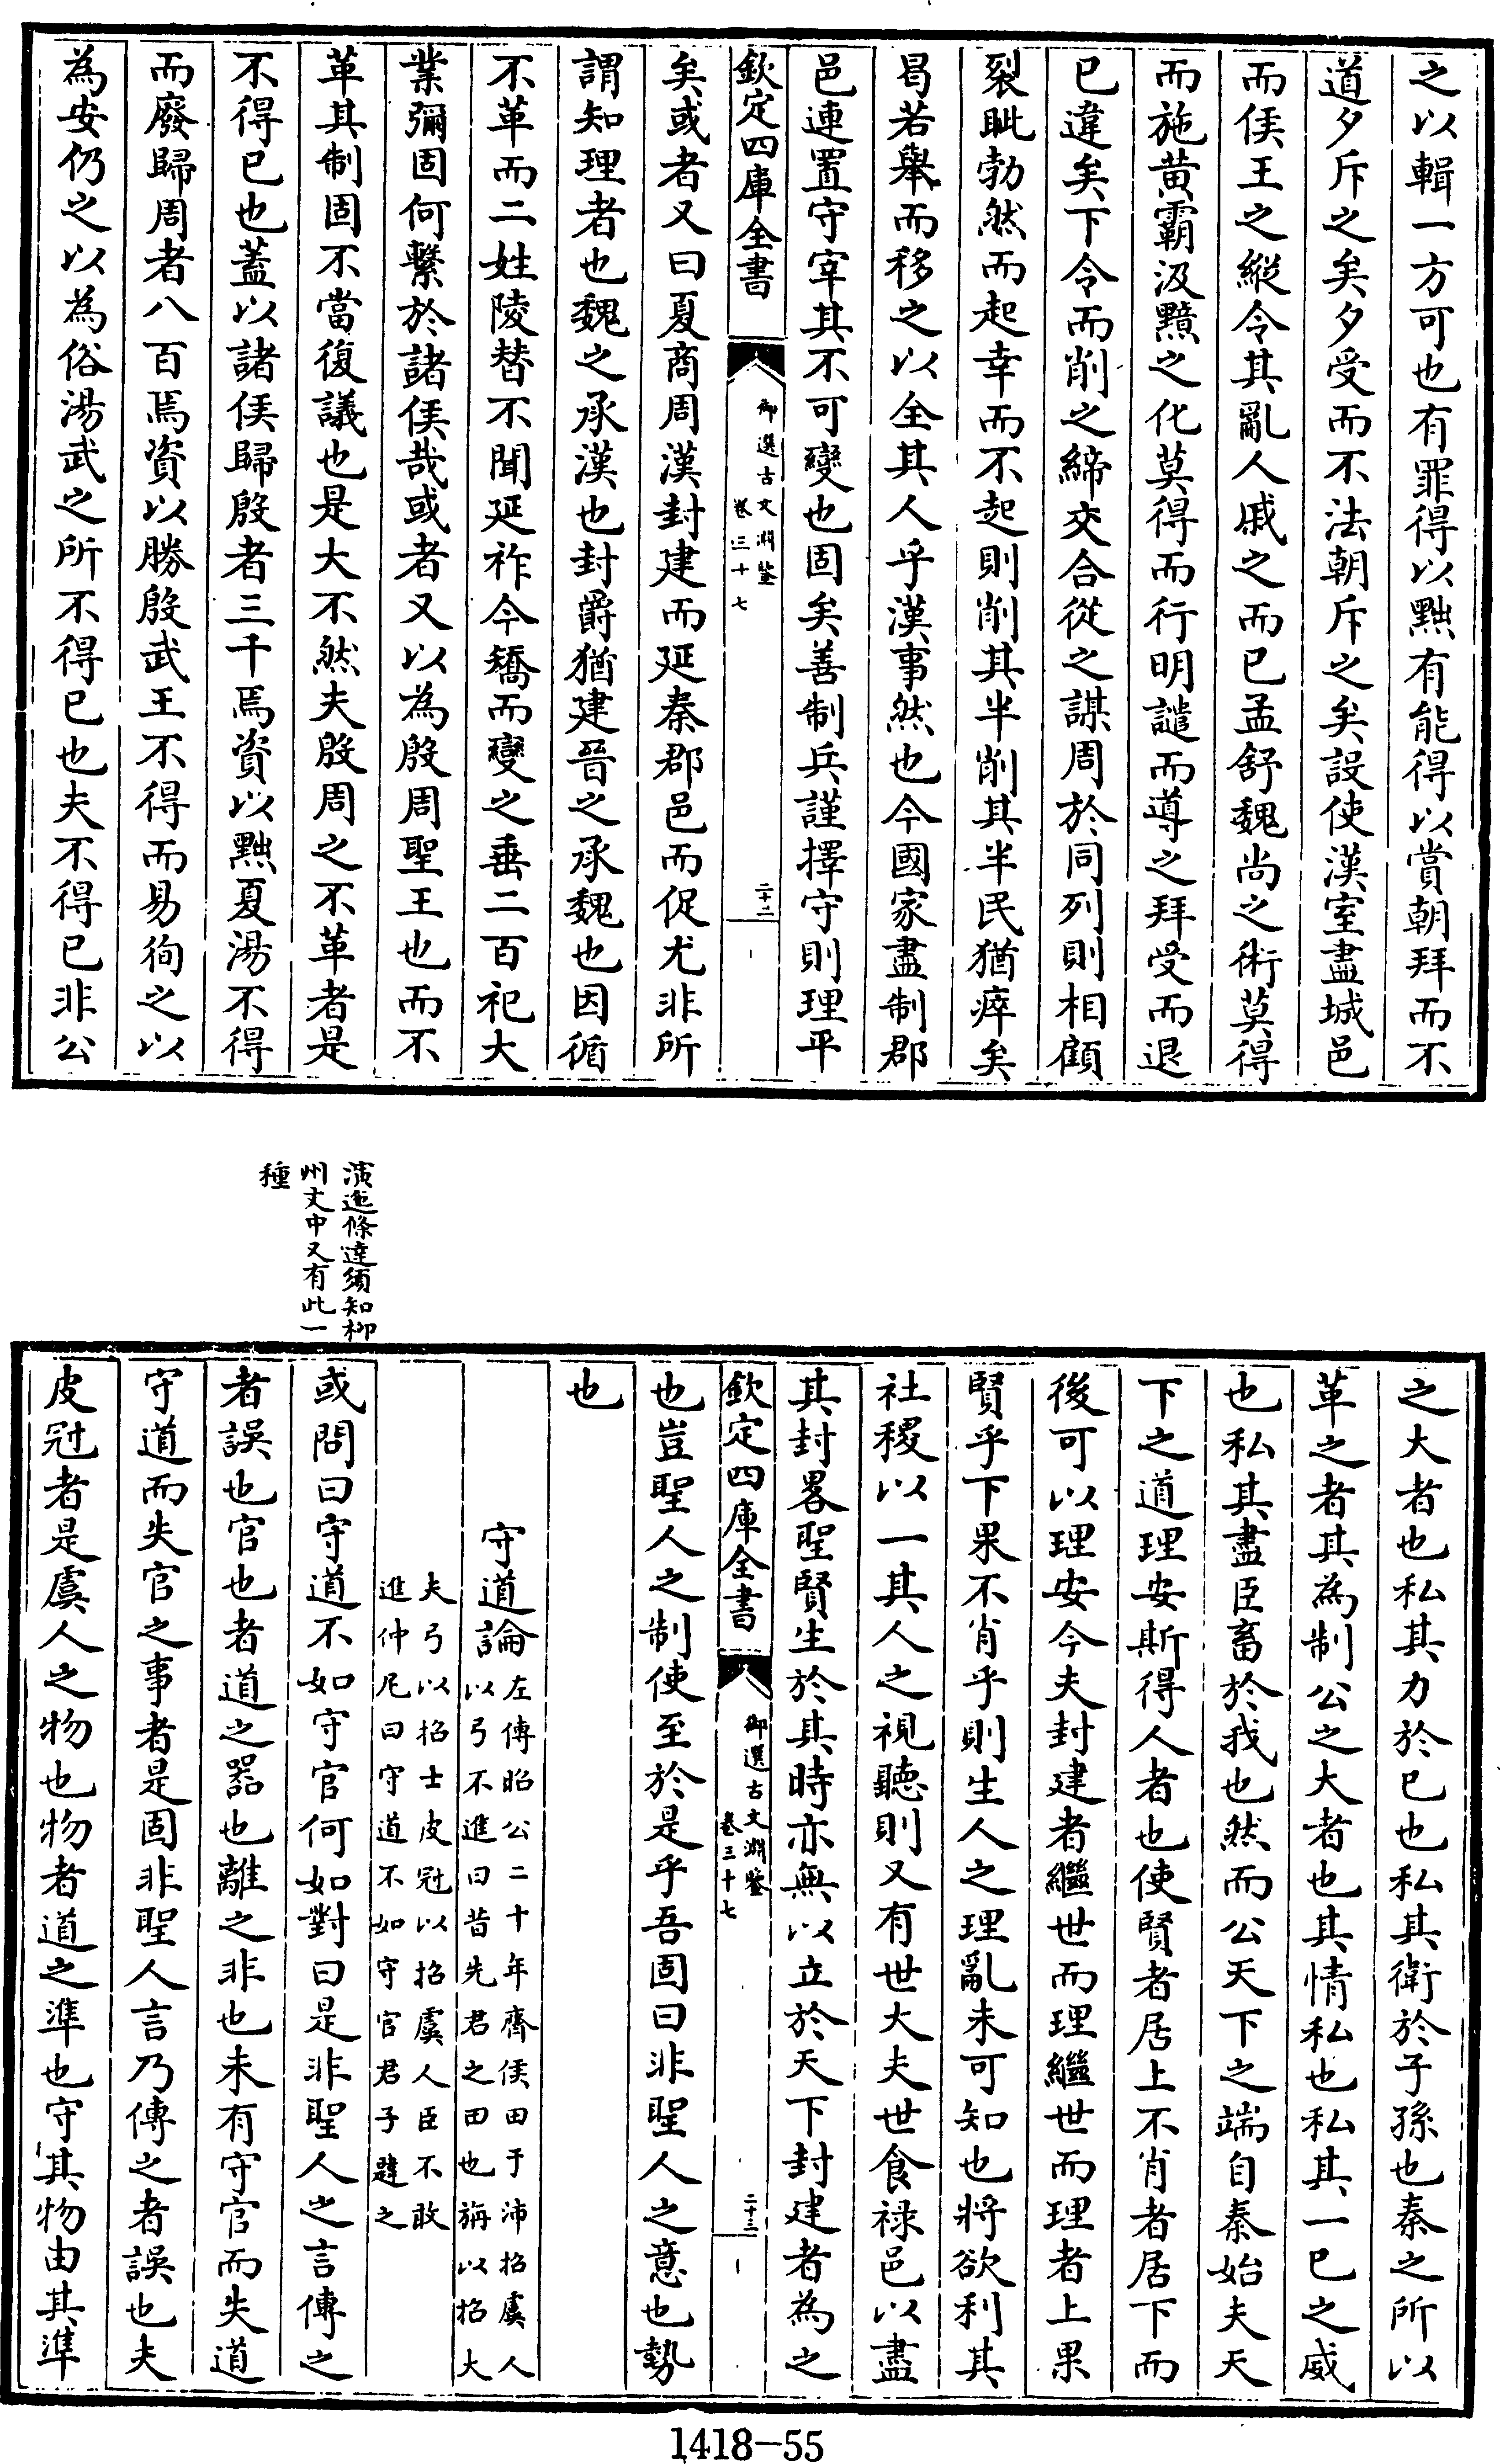 之以輯一方可也有罪得以黜有能得以賞朝拜而不
道夕斥之矣夕受而不法朝斥之矣設使漢室盡城邑
而侯王之縱令其亂人戚之而已孟舒魏尚之術莫得
而施黄霸汲黯之化莫得而行明譴而導之拜受而退
已違矣下令而削之締交合從之謀周於同列則相顧
裂眦勃然而起幸而不起則削其半削其半民猶瘁矣
曷若舉而移之以全其人乎漢事然也今國家盡制郡
邑連置守宰其不可變也固矣善制兵謹擇守則理平
欽定四庫全書 御選古文淵鑒 卷三十七 二十二
矣或者又曰夏商周漢封建而延秦郡邑而促尤非所
謂知理者也魏之承漢也封爵猶建晉之承魏也因循
不革而二姓陵替不聞延祚今矯而變之垂二百祀大
業彌固何繫於諸侯哉或者又以為殷周聖王也而不
革其制固不當復議也是大不然夫殷周之不革者是
不得已也蓋以諸侯歸殷者三千焉資以黜夏湯不得
而廢歸周者八百焉資以勝殷武王不得而易徇之以
為安仍之以為俗湯武之所不得已也夫不得已非公
演迤條達須知柳
州文中又有此一
種
之大者也私其力於已也私其衛於子孫也秦之所以
革之者其為制公之大者也其情私也私其一已之威
也私其盡臣畜於我也然而公天下之端自秦始夫天
下之道理安斯得人者也使賢者居上不肖者居下而
後可以理安今夫封建者繼世而理繼世而理者上果
賢乎下果不肖乎則生人之理亂未可知也將欲利其
社稷以一其人之視聽則又有世大夫世食禄邑以盡
其封畧聖賢生於其時亦無以立於天下封建者為之
欽定四庫全書 御選古文淵鑒 卷三十七 二十三
也豈聖人之制使至於是乎吾固曰非聖人之意也勢
也
守道論 左傳昭公二十年齊侯田于沛招虞人
以弓不進曰昔先君之田也旃以招大
夫弓以招士皮冠以招虞人臣不敢
進仲尼曰守道不如守官君子韙之
或問曰守道不如守官何如對曰是非聖人之言傳之
者誤也官也者道之器也離之非也未有守官而失道
守道而失官之事者是固非聖人言乃傳之者誤也夫
皮冠者是虞人之物也物者道之準也守其物由其準
1418-55